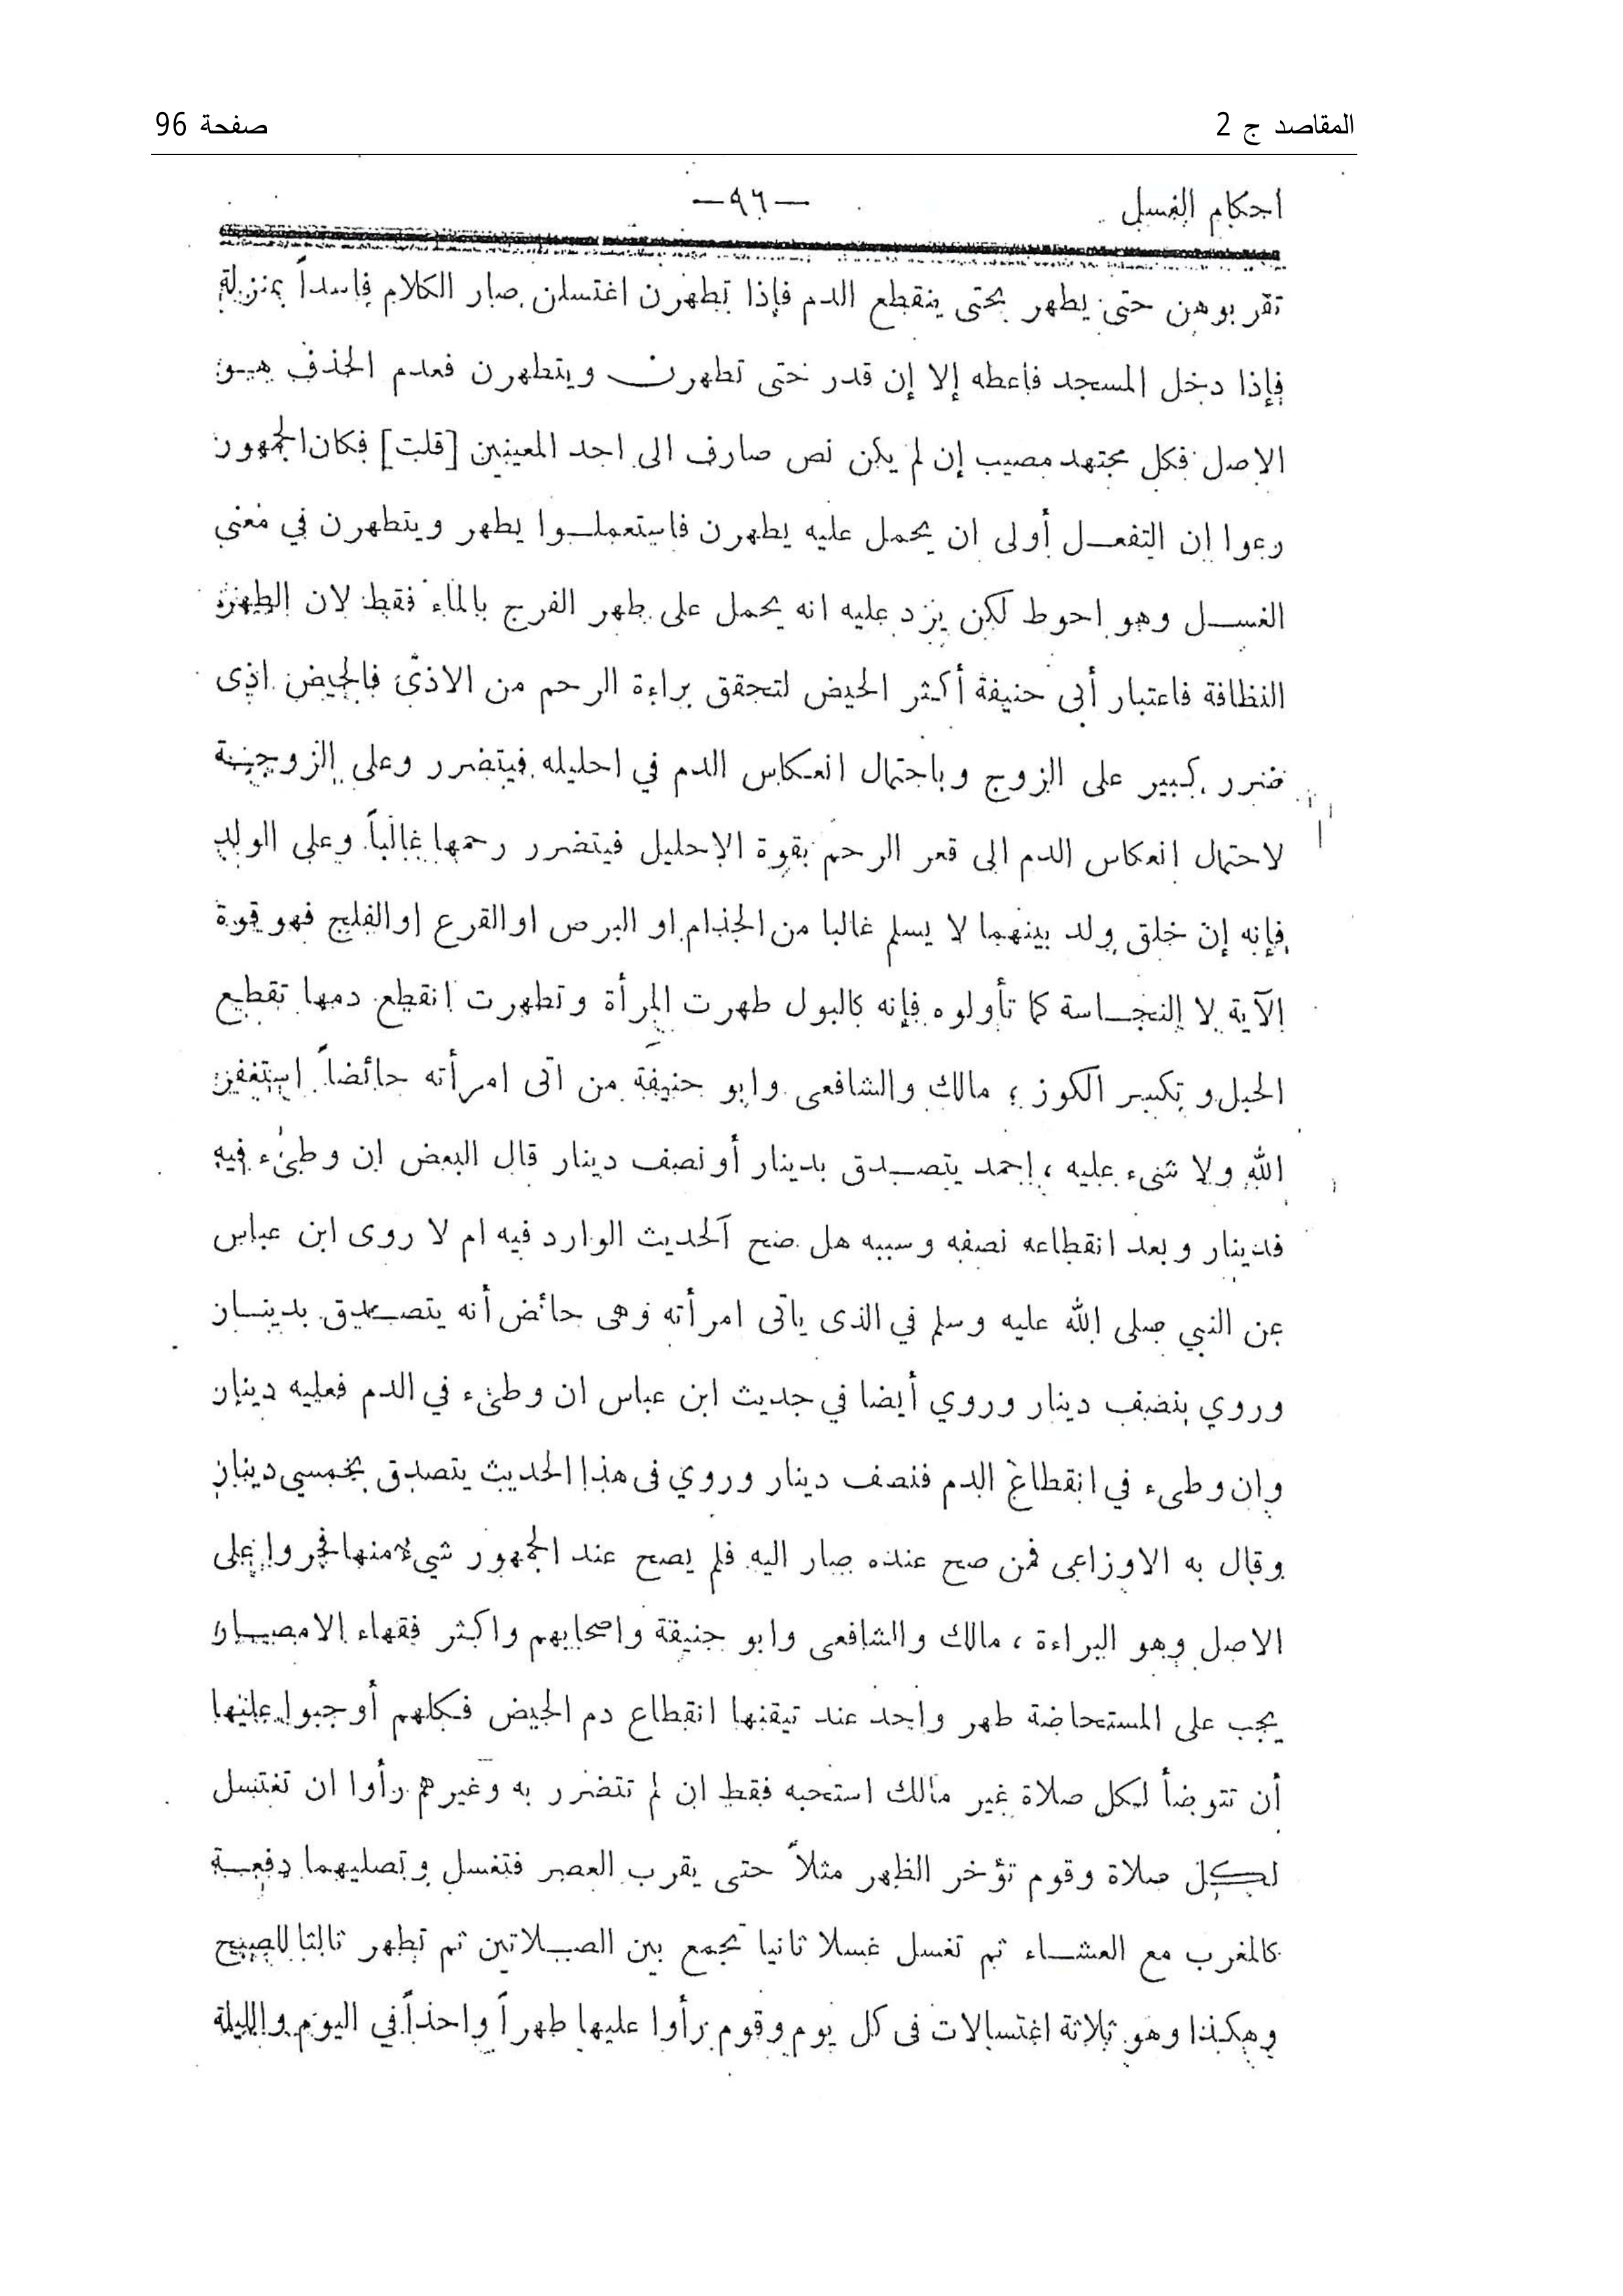 المقاصد ج 2
صفحة 96
احكام الغسل
—٩٦—
تقربوهن حتى يطهر بحتى ينقطع الدم فإذا تطهرن اغتسلن صار الكلام فاسداً بمنزلة
فإذا دخل المسجد فاعطه إلا إن قدر حتى تطهرن ويتطهرن فعدم الحذف هو
الاصل فكل مجتهد مصيب إن لم يكن نص صارف الى احد المعينين [قلت] فكان الجمهور
رعوا ان التفعل أولى ان يحمل عليه يطهرن فاستعملوا يطهر ويتطهرن في معنى
الغسل وهو احوط لكن يرد عليه انه يحمل على طهر الفرج بالماء فقط لان الطهرة
النظافة فاعتبار أبى حنيفة أكثر الحيض لتحقق براءة الرحم من الاذى فالحيض اذى
ضرر كبير على الزوج وباحتمال انعكاس الدم في احليله فيتضرر وعلى الزوجة
لاحتمال انعكاس الدم الى قعر الرحم بقوة الإحليل فيتضرر رحمها غالباً وعلى الولد
فإنه إن خلق ولد بينهما لا يسلم غالبا من الجذام او البرص او القرع او الفلج فهو قوة
الآية لا النجاسة كما تأولوه فإنه كالبول طهرت المرأة وتطهرت انقطع دمها تقطيع
الحبل وتكسر الكوز ؛ مالك والشافعى وابو حنيفة من اتى امرأته حائضاً استغفر
الله ولا شىء عليه ، احمد يتصدق بدينار أو نصف دينار قال البعض ان وطىء فيه
فدينار وبعد انقطاعه نصفه وسببه هل صح الحديث الوارد فيه ام لا روى ابن عباس
عن النبي صلى الله عليه وسلم في الذى ياتى امرأته وهى حائض أنه يتصدق بدينار
وروي بنصف دينار وروي أيضا في حديث ابن عباس ان وطىء في الدم فعليه دينار
وان وطىء في انقطاع الدم فنصف دينار وروي فى هذا الحديث يتصدق بخمسي دينار
وقال به الاوزاعى فمن صح عنده صار اليه فلم يصح عند الجمهور شيء منها فجروا على
الاصل وهو البراءة ، مالك والشافعى وابو حنيفة واصحابهم واكثر فقهاء الامصار
يجب على المستحاضة طهر واحد عند تيقنها انقطاع دم الحيض فكلهم أوجبوا عليها
أن تتوضأ لكل صلاة غير مالك استحبه فقط ان لم تتضرر به وغيرهم رأوا ان تغتسل
لكل صلاة وقوم تؤخر الظهر مثلاً حتى يقرب العصر فتغسل وتصليهما دفعة
كالمغرب مع العشاء ثم تغسل غسلا ثانيا تجمع بين الصلاتين ثم تطهر ثالثا للصبح
وهكذا وهو ثلاثة اغتسالات فى كل يوم وقوم رأوا عليها طهراً واحداً في اليوم والليلة